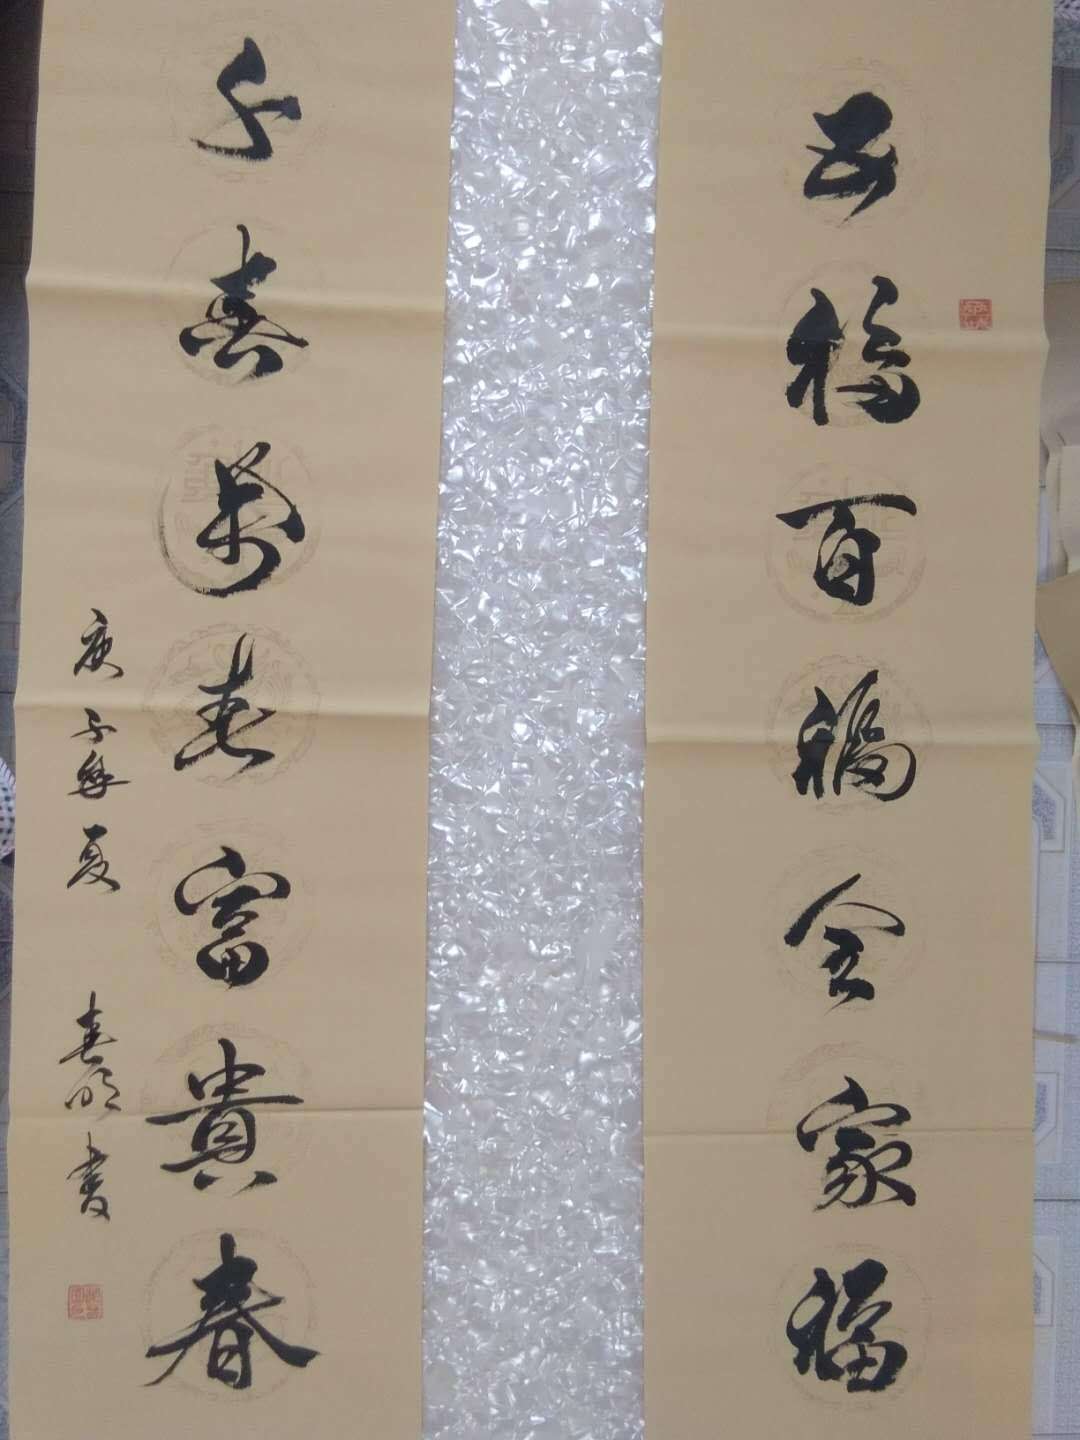 五福百福全家福
千春萬春富貴春
庚子年夏
春明書